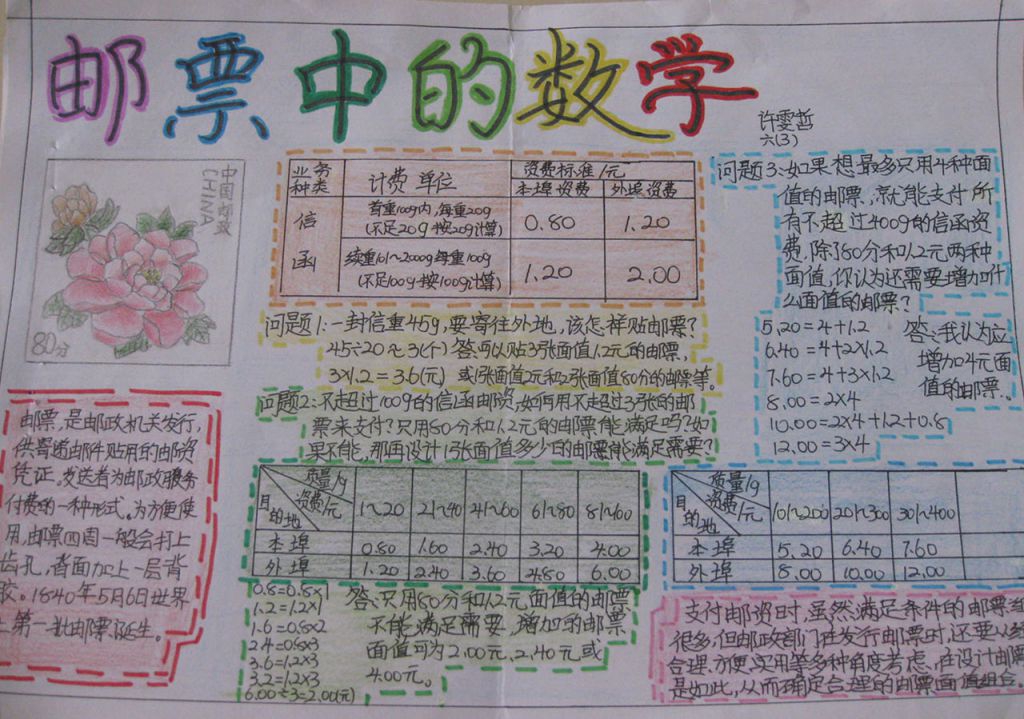 邮票中的数学
许雯哲
六(3)
中国邮政
CHINA
80分
业务
种类
计费单位
资费标准/元
本埠资费
外埠资费
信
函
首重100g内,每重20g
(不足20g按20g计算)
0.80
1.20
续重101~2000g每重100g
(不足100g按100g计算)
1.20
2.00
问题1:一封信重45g,要寄往外地,该怎样贴邮票?
45÷20≈3(个) 答:可以贴3张面值1.2元的邮票,
3×1.2=3.6(元) 或1张面值2元和2张面值80分的邮票等。
问题2:不超过100g的信函邮资,如何用不超过3张的邮
票来支付?只用80分和1.2元的邮票能满足吗?如
果不能,那再设计1张面值多少的邮票能满足需要?
质量/g
资费/元
目的地
1~20 21~40 41~60 61~80 81~100
本埠 0.80 1.60 2.40 3.20 4.00
外埠 1.20 2.40 3.60 4.80 6.00
0.8=0.8×1
1.2=1.2×1
1.6=0.8×2
2.4=0.8×3
3.6=1.2×3
3.2=1.2×3
6.00÷3=2.00(元)
答:只用80分和1.2元面值的邮票
不能满足需要,增加的邮票
面值可为2.00元、2.40元或
4.00元。
问题3:如果想最多只用4种面
值的邮票,就能支付所
有不超过400g的信函资
费,除了80分和1.2元两种
面值,你认为还需要增加什
么面值的邮票?
5.20=4+1.2
6.40=4+2×1.2
7.60=4+3×1.2
8.00=2×4
10.00=2×4+1.2+0.8
12.00=3×4
答:我认为应
增加4元面
值的邮票。
质量/g
资费/元
目的地
101~200 201~300 301~400
本埠 5.20 6.40 7.60
外埠 8.00 10.00 12.00
邮票,是邮政机关发行,
供寄递邮件贴用的邮资
凭证。发送者为邮政服务
付费的一种形式。为方便使
用,邮票四周一般会打上
齿孔,背面加上一层背
胶。1840年5月6日世界
上第一批邮票诞生。
支付邮资时,虽然满足条件的邮票组
很多,但邮政部门在发行邮票时,还要从经
合理、方便、实用等多种角度考虑,在设计邮票
是如此,从而确定合理的邮票面值组合。